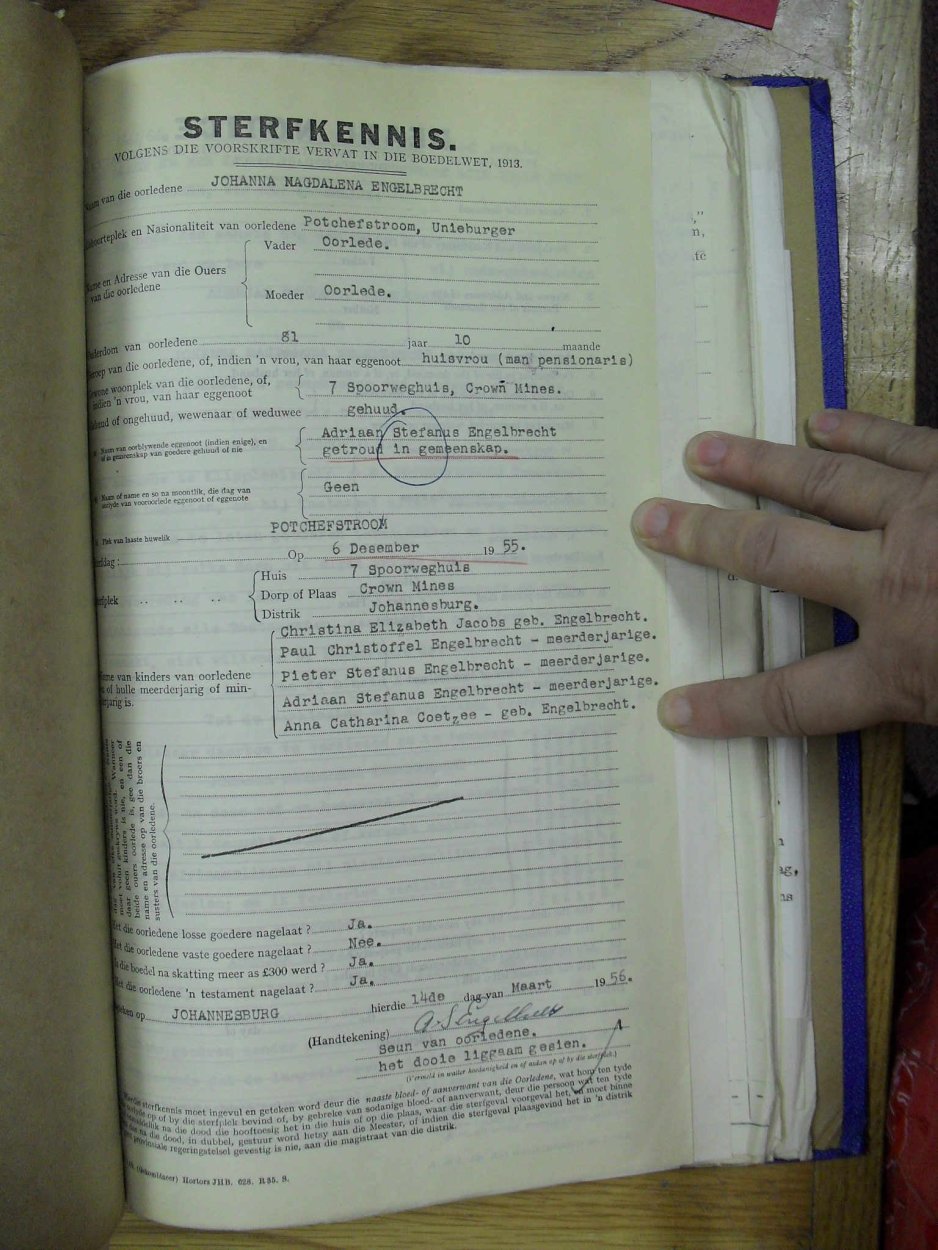 STERFKENNIS.
VOLGENS DIE VOORSKRIFTE VERVAT IN DIE BOEDELWET, 1913.
van die oorledene JOHANNA MAGDALENA ENGELBRECHT
en Nasionaliteit van oorledene Potchefstroom, Unieburger
Vader Oorlede.
en Adresse van die Ouers
van die oorledene
Moeder Oorlede.
van oorledene 81 jaar 10 maande
van die oorledene, of, indien 'n vrou, van haar eggenoot huisvrou (man pensionaris)
woonplek van die oorledene, of,
indien 'n vrou, van haar eggenoot
7 Spoorweghuis, Crown Mines.
of ongehuud, wewenaar of weduwee gehuud.
Naam van oorblywende eggenoot (indien enige), en
of in gemeenskap van goedere gehuud of nie
Adriaan Stefanus Engelbrecht
getroud in gemeenskap.
Naam of name en so na moontlik, die dag van
van vooroorlede eggenoot of eggenote
Geen
Plek van laaste huwelik POTCHEFSTROOM
Op 6 Desember 1955.
Huis 7 Spoorweghuis
Dorp of Plaas Crown Mines
Distrik Johannesburg.
van kinders van oorledene
of hulle meerderjarig of min-
is.
Christina Elizabeth Jacobs geb. Engelbrecht.
Paul Christoffel Engelbrecht - meerderjarige.
Pieter Stefanus Engelbrecht - meerderjarige.
Adriaan Stefanus Engelbrecht - meerderjarige.
Anna Catharina Coetzee - geb. Engelbrecht.
daar geen kinders is nie, en een of
beide ouers oorlede is, gee dan die
name en adresse op van die broers en
susters van die oorledene.
die oorledene losse goedere nagelaat? Ja.
die oorledene vaste goedere nagelaat? Nee.
die boedel na skatting meer as £300 werd? Ja.
die oorledene 'n testament nagelaat? Ja.
op JOHANNESBURG hierdie 14de dag van Maart 1956.
(Handtekening) A. S. Engelbrecht
Seun van oorledene.
het dooie liggaam gesien.
(Vermeld in watter hoedanigheid en of anders op of by die sterfplek.)
sterfkennis moet ingevul en geteken word deur die naaste bloed- of aanverwant van die Oorledene, wat
op of by die sterfplek bevind of, by gebreke van sodanige bloed- of aanverwant, deur die persoon wat ten tyde
na die dood die hooftoesig het in die huis of op die plaas, waar die sterfgeval voorgeval het, en moet binne
na die dood, in dubbel, gestuur word hetsy aan die Meester, of indien die sterfgeval plaasgevind het in 'n distrik
regeringstelsel gevestig is nie, aan die magistraat van die distrik.
Hortors JHB. 628. R.35. S.